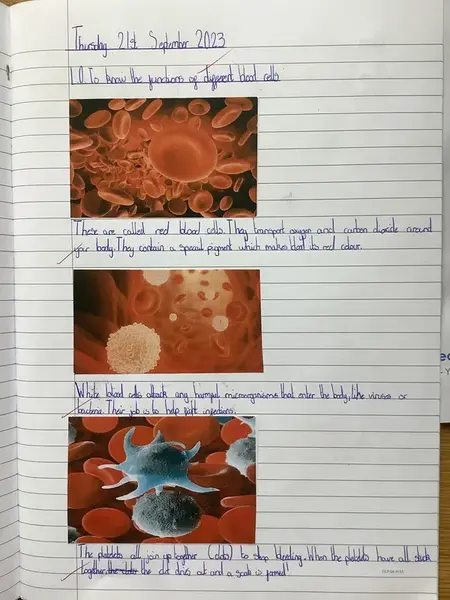 Thursday 21st September 2023
L.O. To know the functions of different blood cells
These are called red blood cells. They transport oxygen and carbon dioxide around
your body. They contain a special pigment which makes blood its red colour.
White blood cells attack any harmful microorganisms that enter the body, like viruses or
bacteria. Their job is to help fight infections.
The platelets all join up together (clots) to stop bleeding. When the platelets have all stuck
together, the clot dries out and a scab is formed!